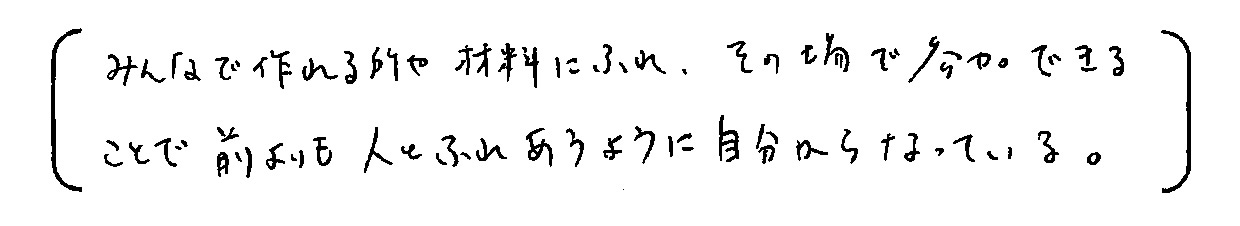 みんなで作れる所や材料にふれ、その場で参加できる
ことで前よりも人とふれあうように自分からなっている。